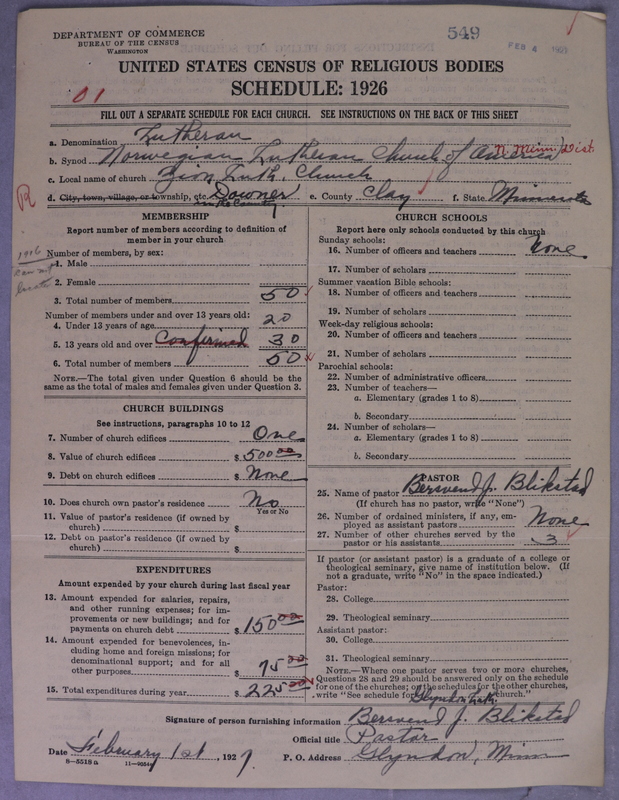 DEPARTMENT OF COMMERCE
BUREAU OF THE CENSUS
WASHINGTON
549
FEB 4 1927
UNITED STATES CENSUS OF RELIGIOUS BODIES
SCHEDULE: 1926
01
FILL OUT A SEPARATE SCHEDULE FOR EACH CHURCH. SEE INSTRUCTIONS ON THE BACK OF THIS SHEET
a. Denomination Lutheran
b. Synod Norwegian Lutheran Church of America N. Minn. Dist.
c. Local name of church Zion Luth. Church
R
d. City, town, village, or township, etc. Downer e. County Clay f. State Minnesota
in the Country
MEMBERSHIP
Report number of members according to definition of
member in your church
1916
can not
locate
Number of members, by sex:
1. Male
2. Female
3. Total number of members 50
Number of members under and over 13 years old:
4. Under 13 years of age 20
5. 13 years old and over Confirmed 30
6. Total number of members 50
NOTE.—The total given under Question 6 should be the
same as the total of males and females given under Question 3.
CHURCH BUILDINGS
See instructions, paragraphs 10 to 12
7. Number of church edifices One
8. Value of church edifices $ 500.00
9. Debt on church edifices $ None
10. Does church own pastor's residence No
Yes or No
11. Value of pastor's residence (if owned by
church) $
12. Debt on pastor's residence (if owned by
church) $
EXPENDITURES
Amount expended by your church during last fiscal year
13. Amount expended for salaries, repairs,
and other running expenses; for im-
provements or new buildings; and for
payments on church debt $ 150.00
14. Amount expended for benevolences, in-
cluding home and foreign missions; for
denominational support; and for all
other purposes $ 75.00
15. Total expenditures during year $ 225.00
CHURCH SCHOOLS
Report here only schools conducted by this church
Sunday schools:
16. Number of officers and teachers None
17. Number of scholars
Summer vacation Bible schools:
18. Number of officers and teachers
19. Number of scholars
Week-day religious schools:
20. Number of officers and teachers
21. Number of scholars
Parochial schools:
22. Number of administrative officers
23. Number of teachers—
a. Elementary (grades 1 to 8)
b. Secondary
24. Number of scholars—
a. Elementary (grades 1 to 8)
b. Secondary
PASTOR
25. Name of pastor Bersvend J. Blikstad
(If church has no pastor, write "None")
26. Number of ordained ministers, if any, em-
ployed as assistant pastors None
27. Number of other churches served by the
pastor or his assistants 3
If pastor (or assistant pastor) is a graduate of a college or
theological seminary, give name of institution below. (If
not a graduate, write "No" in the space indicated.)
Pastor:
28. College
29. Theological seminary
Assistant pastor:
30. College
31. Theological seminary
NOTE.—Where one pastor serves two or more churches,
Questions 28 and 29 should be answered only on the schedule
for one of the churches; on the schedules for the other churches,
write "See schedule for Glyndon Luth. church."
Signature of person furnishing information Bersvend J. Blikstad
Official title Pastor
Date February 1st, 1927. P. O. Address Glyndon, Minn
8—5518 a 11—9554